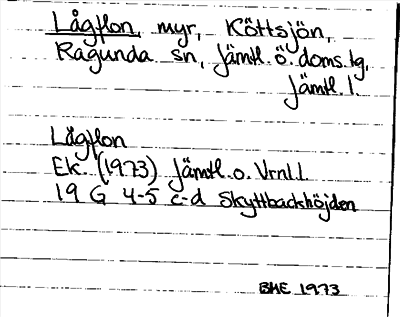 Lågflon, myr, Köttsjön,
Ragunda sn, Jämtl. ö. doms. tg.
Jämtl. l.
Lågflon
Ek. (1973) Jämtl. o. Vrnl. l.
19 G 4-5 c-d Skyttbackhöjden
BME 1973